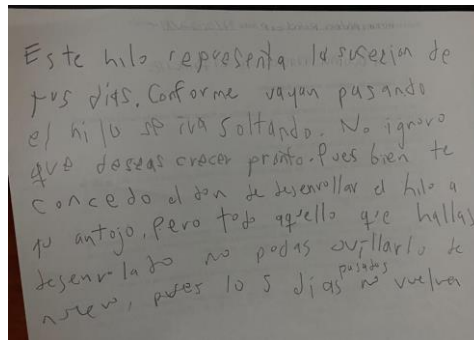 Este hilo representa la sucezion de
tus dias. Conforme vayan pasando
el hilo se ira soltando. No ignoro
que deseas crecer pronto. Pues bien te
concedo el don de desenrollar el hilo a
tu antojo. Pero todo aquello que hallas
desenrolado no podas ovillarlo de
nuevo, pues los dias pasados no vuelven